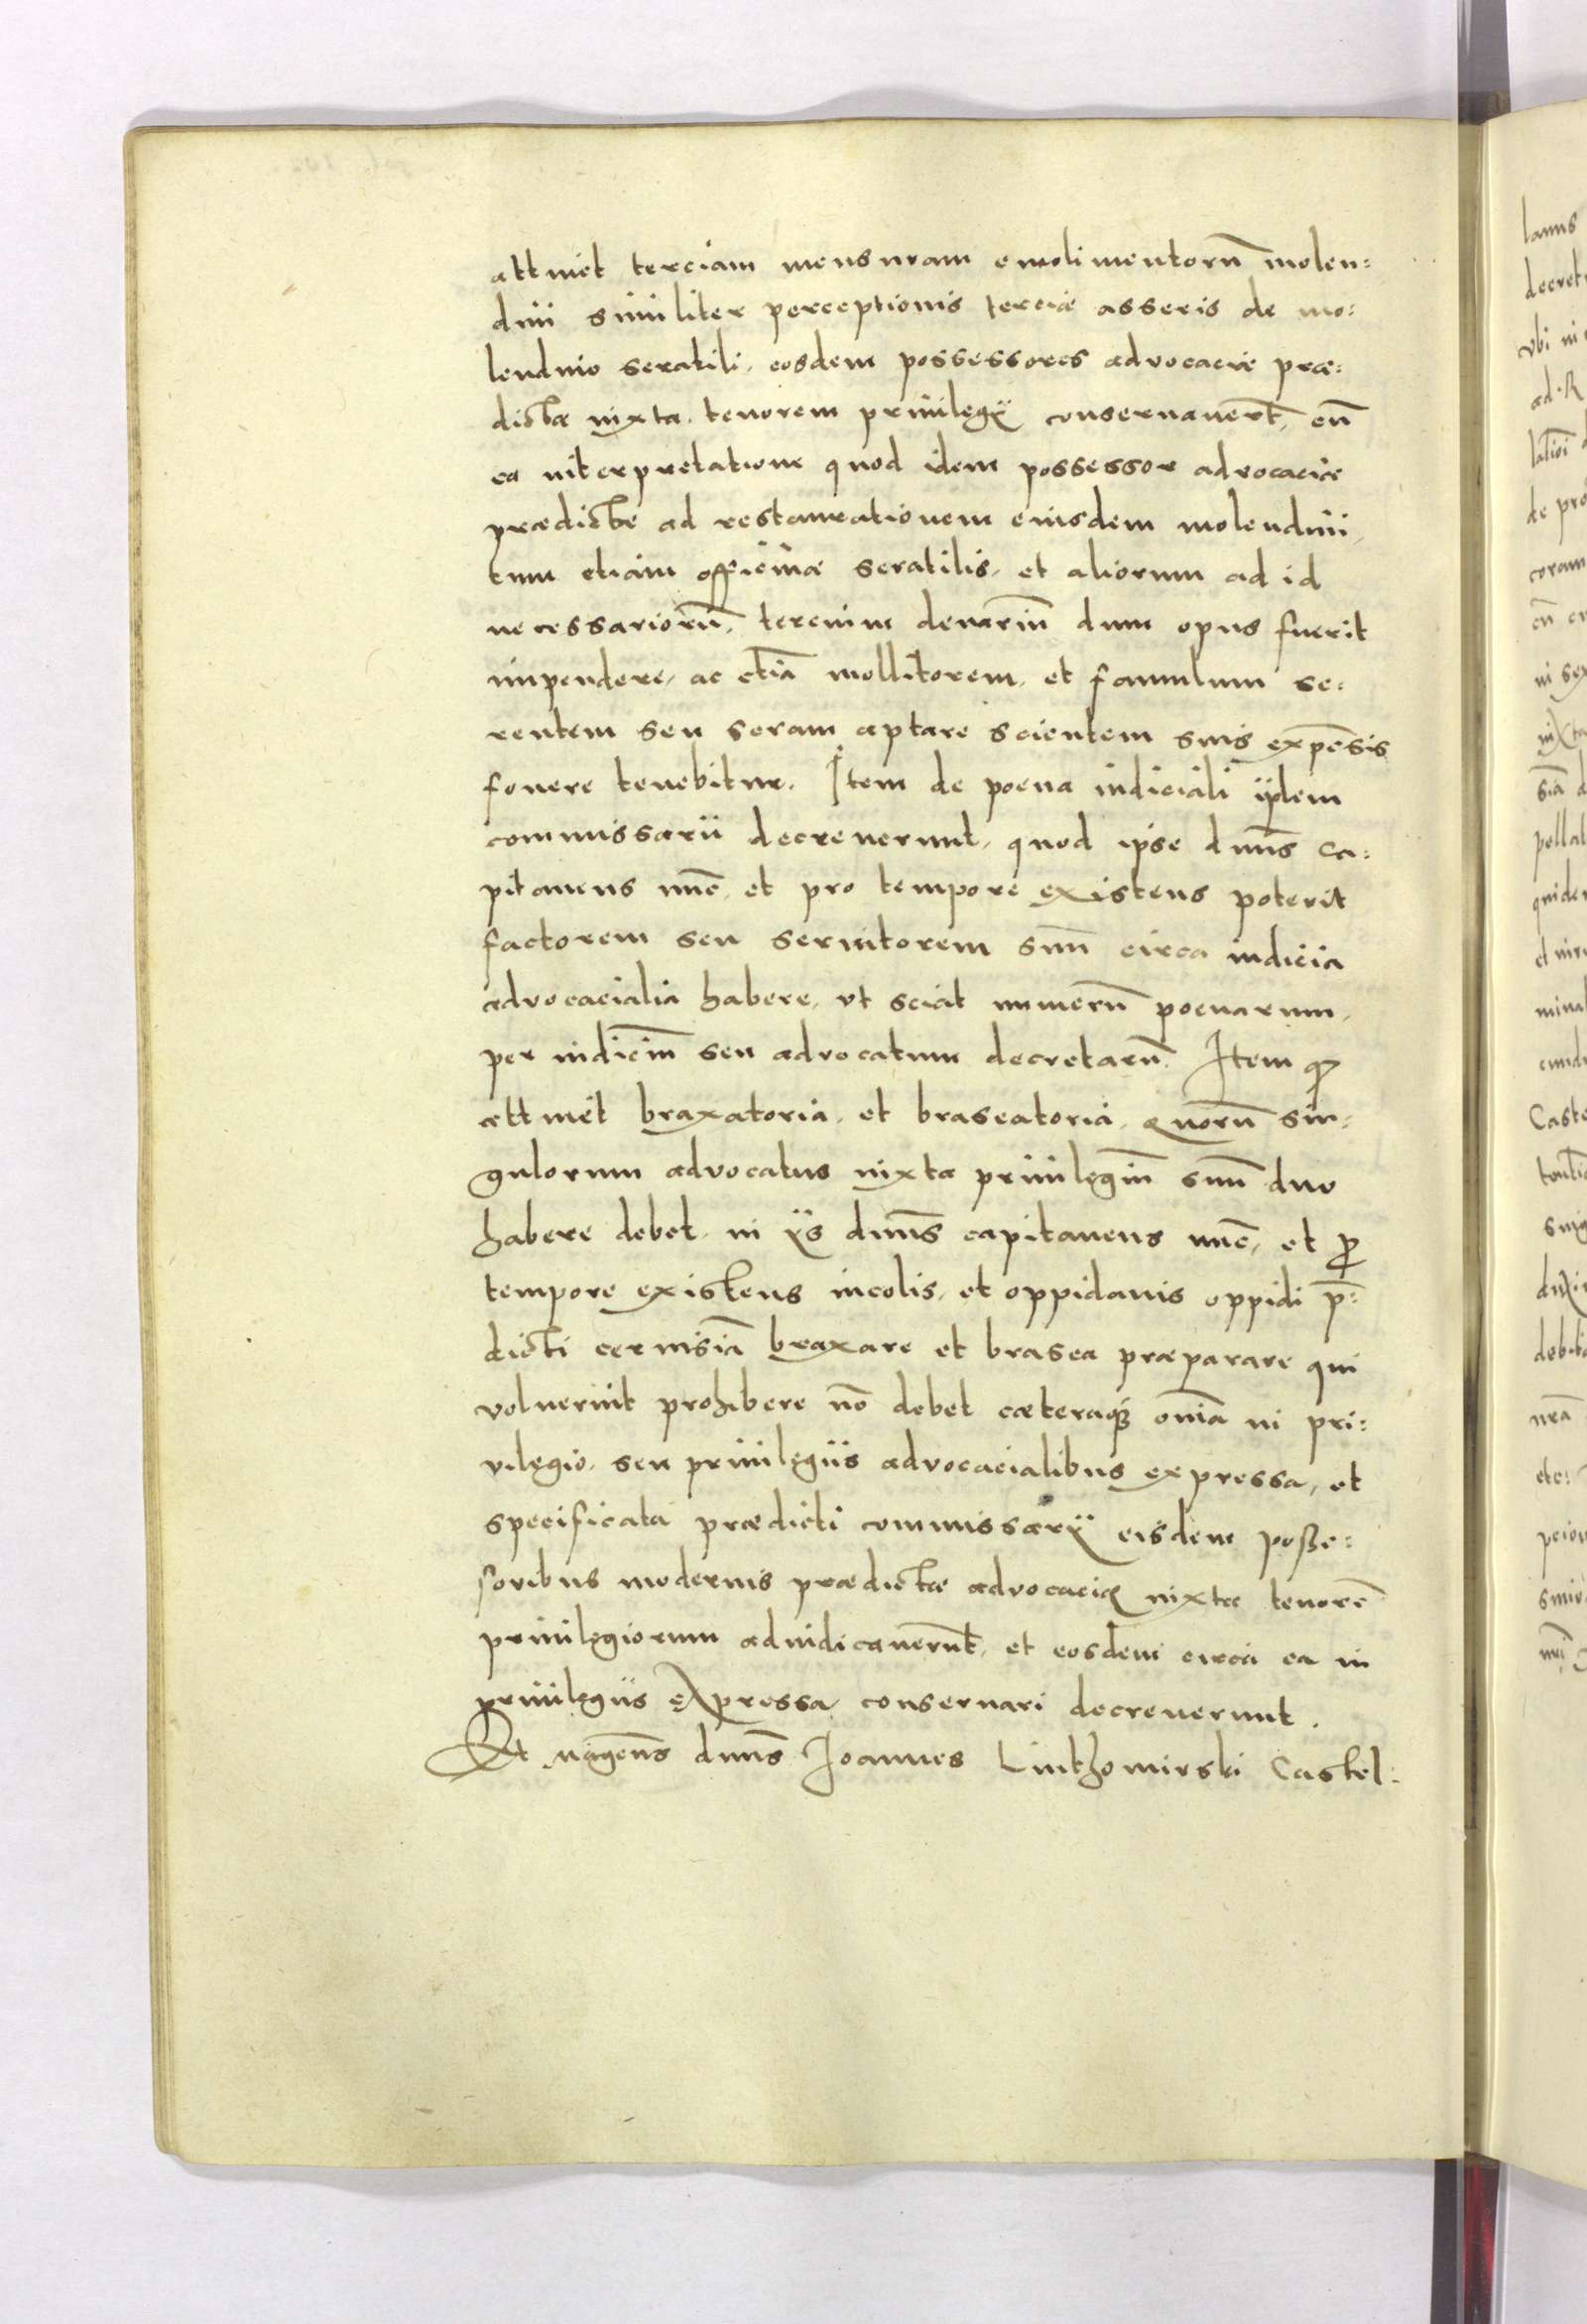 attinet terciam mensuram emolimentorũ molen=
dini similiter perceptionis terciæ asseris de mo=
lendino seratili, eosdem possessores advocaciæ præ=
dictæ iuxta tenorem privilegÿ conservaverũt, cũ
ea interpretatione quod idem possessor advocaciæ
prædictæ ad restaurationem eiusdem molendini,
tum etiam officinæ seratilis, et aliorum ad id
necessariorũ, tercium denariũ dum opus fuerit
impendere, ac etiã mollitorem, et famulum se=
rentem seu seram aptare scientem suis expẽsis
fouere tenebitur. Item de poena iudiciali ijdem
commissarii decreuerunt, quod ipse dñus ca=
pitaneus nũc, et pro tempore existens poterit
factorem seu seruitorem suũ circa iudicia
advocacialia habere, vt sciat numerũ poenarum,
per iudiciũ seu advocatum decretarũ. Item qȝ
attinet braxatoria, et braseatoria, quorũ sin=
gulorum advocatus iuxta priuilegiũ suũ duo
habere debet, in ÿs dñus capitaneus nũc, et ꝓ
tempore existens incolis, et oppidanis oppidi p̃=
dicti ceruisiã braxare et brasea præparare qui
voluerint prohibere nõ debet cæteraqȝ oñia in pri=
vilegio, seu priuilegiis advocacialibus expressa, et
specificata prædicti commissarÿ eisdem posse=
soribus modernis prædictæ advocaciæ iuxta tenorẽ
priuilegiorum adiudicauerũt, et eosdem circa ea in
priuilegiis expressa conseruari decreuerunt.
Et mãgcus dñus Joannes Luthomirski Castel=